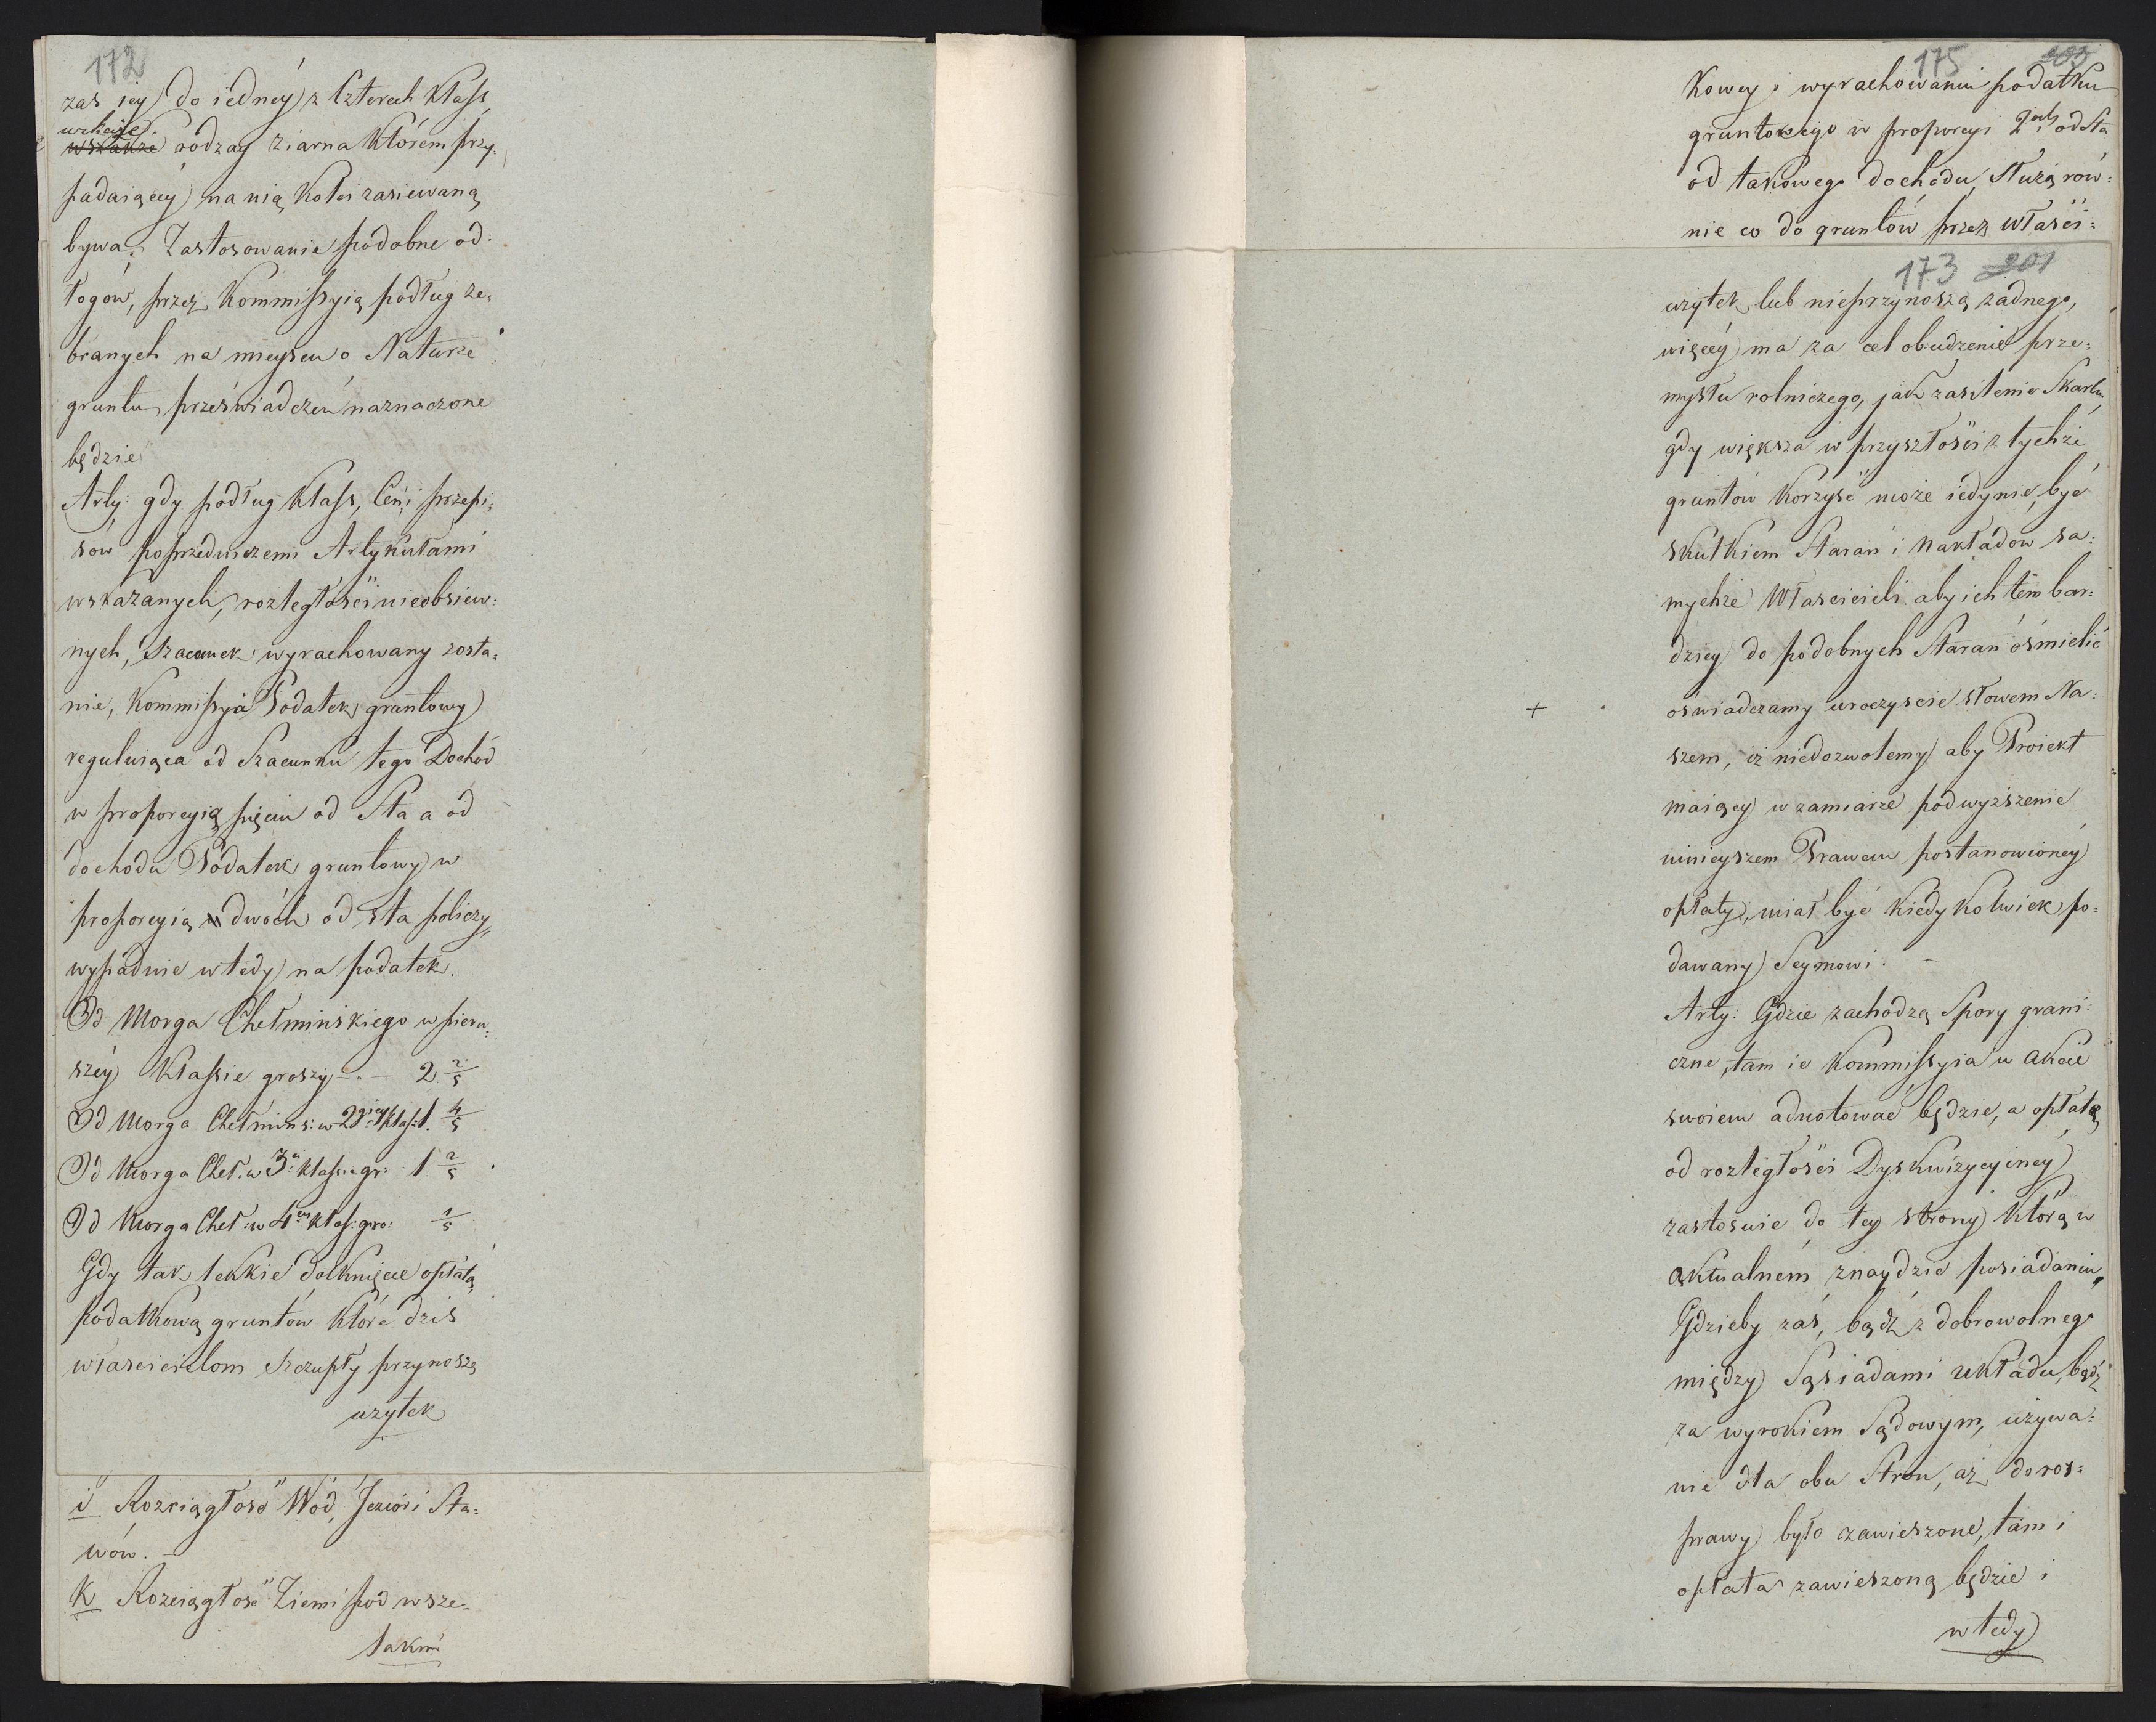 172
zas iey do iedney z Czterech Klass
wskaże
wskaże rodzay ziarna którem przy-
padaiącey na nią kolei zasiewaną
bywa. Zastosowanie podobne od-
łogów, przez Kommissyią podług ze-
branych na mieyscu o Naturze
gruntu przeświadczeń naznaczone
będzie
Arty: gdy podług Klass, Cen, i przepi-
sow poprzedniczemi Artykułami
wskazanych, rozległości nieobsiew-
nych, Szacunek wyrachowany zosta-
nie, Kommissyia Podatek gruntowy
reguluiąca od Szacunku tego Dochód
w proporcyią pięciu od Sta a od
dochodu Podatek gruntowy w
proporcyią dwóch od sta policzy,
wypadnie wtedy na podatek.
Od Morga Chełminskiego w pierw-
széy Klassie groszy -"- 2 2/5
Od Morga Chełmins: w 2giey klas: 1. 4/5
Od Morga Cheł. w 3ei klassie gr: 1. 2/5
Od Morga Cheł: w 4ey klas: gro: 1/5
Gdy tak lekkie dotknięcie opłatą
podatkową gruntów które dzis
właścicielom Szczupły przynoszą
uzytek
i Rozciągłość Wód, Jezior i Sta-
wów. -
K Rozciągłość Ziemi pod wsze-
lakmi
175 203
kowey i wyrachowaniu podatku
gruntowego w proporcyi 2ch od Sta
od takowego dochodu, służą rów-
nie co do gruntów przez właści-
173 201
użytek lub nieprzynoszą żadnego,
więcey ma za cel obudzenie prze-
mysłu rolniczego, jak zasilenie Skarbu,
gdy większa w przyszłości z tychże
gruntów korzyść może iedynie być
skutkiem Starań i nakładow sa-
mychże Właścicieli. aby ich tém bar-
dziey do podobnych Starań ośmielić
+ oświadczamy uroczyscie słowem Na-
szem, iż niedozwolemy aby Proiekt
maiący w zamiarze podwyższenie
ninieyszem Prawem postanowioney
opłaty, miał być kiedykolwiek po-
dawany Seymowi. -
Arty: Gdzie zachodzą Spory grani-
czne, tam ie Kommissyia w akcie
swoiem adnotować będzie, a opłatę
od rozległości Dyskwizycyiney
zastosuie do tey strony którą w
aktualném znaydzie posiadaniu,
Gdzieby zaś, bądź z dobrowolnego
między Sąsiadami układu, bądź
za wyrokiem Sądowym, używa-
nie dla obu Stron, aż do roz-
prawy było zawieszone, tam i
opłata zawieszoną będzie i
wtedy